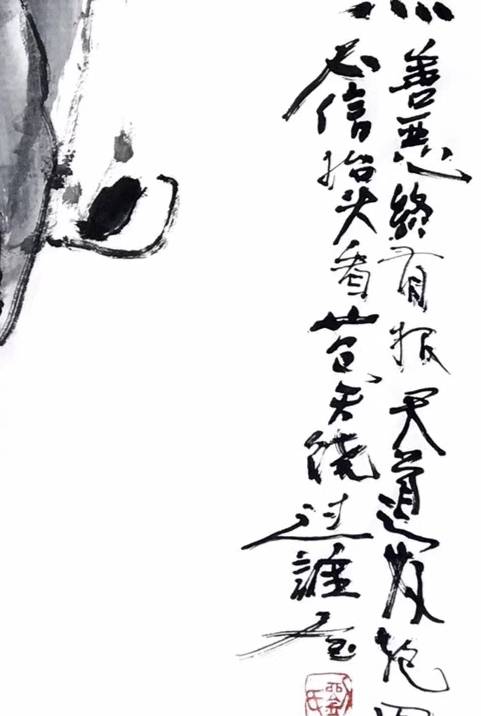 善恶終有报天道轮
不信抬头看苍天饶过誰